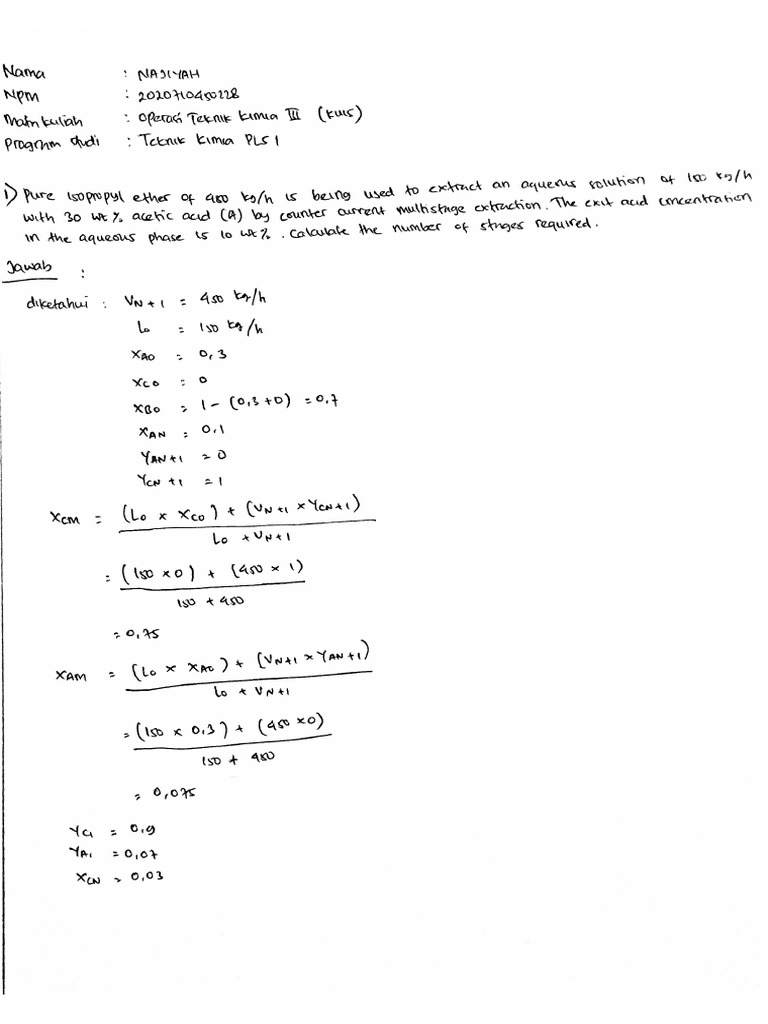 Nama : NAJIYAH
NPM : 2020710450228
Matakuliah : Operasi Teknik Kimia III (Kuis)
Program studi : Teknik Kimia PLS 1
1) Pure isopropyl ether of 450 kg/h is being used to extract an aqueous solution of 150 kg/h
with 30 wt % acetic acid (A) by counter current multistage extraction. The exit acid concentration
in the aqueous phase is 10 wt %. Calculate the number of stages required.
Jawab :
diketahui : VN+1 = 450 kg/h
Lo = 150 kg/h
XAO = 0,3
XCO = 0
XBO = 1 - (0,3+0) = 0,7
XAN = 0,1
YAN+1 = 0
YCN+1 = 1
XCM = (Lo × XCO) + (VN+1 × YCN+1)
Lo + VN+1
= (150 × 0) + (450 × 1)
150 + 450
= 0,75
XAM = (Lo × XAO) + (VN+1 × YAN+1)
Lo + VN+1
= (150 × 0,3) + (450 × 0)
150 + 450
= 0,075
YC1 = 0,9
YA1 = 0,07
XCN = 0,03